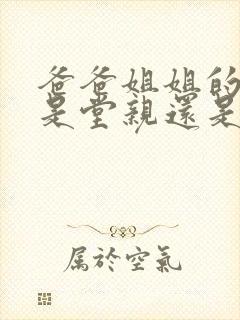 爸爸姐姐的
是堂親還是
属於空氣